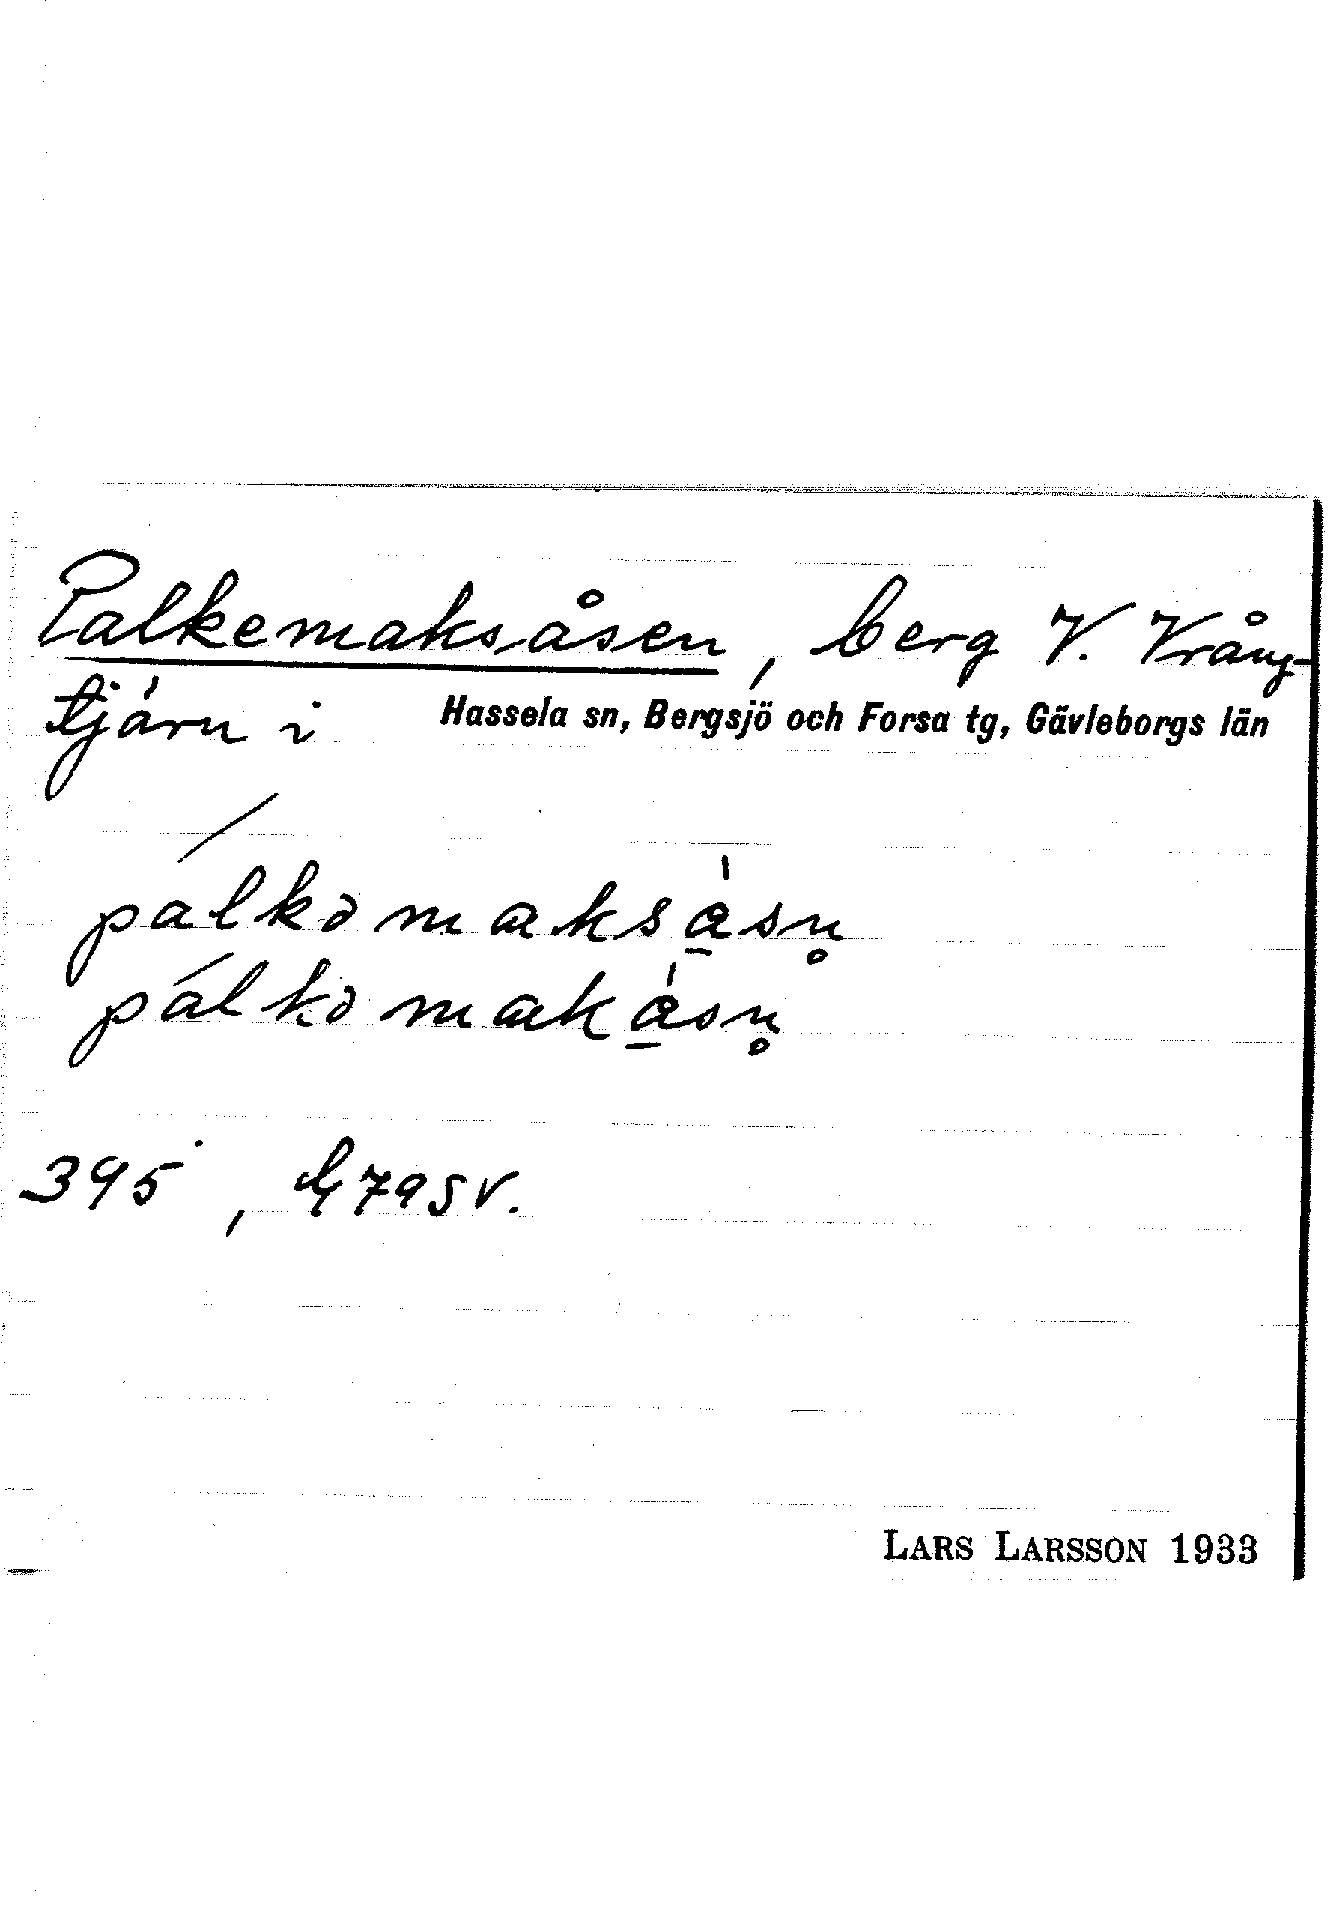 Palkemaksåsen, berg V. Vrång-
tjärn i Hassela sn, Bergsjö och Forsa tg, Gävleborgs län
pálkəmaksåsn̥
pálkəmakåsn̥
395, G 79 SV.
LARS LARSSON 1933